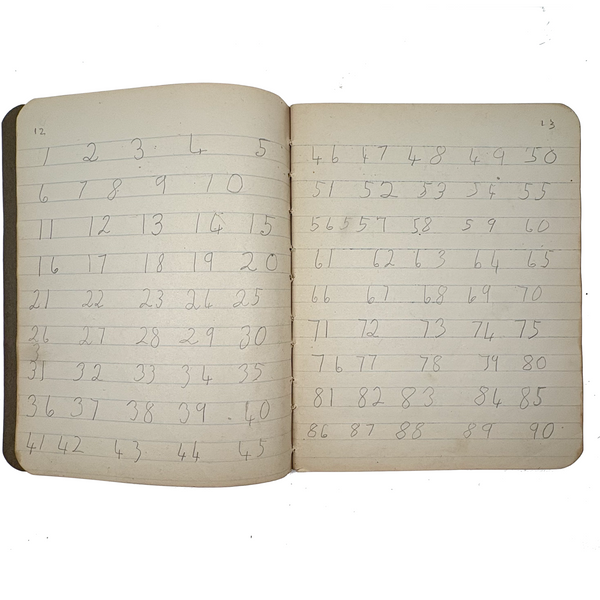 12
1 2 3 4 5
6 7 8 9 10
11 12 13 14 15
16 17 18 19 20
21 22 23 24 25
26 27 28 29 30
3
31 32 33 34 35
36 37 38 39 40
41 42 43 44 45
13
46 47 48 49 50
51 52 53 54 55
56 5 57 58 59 60
61 62 63 64 65
66 67 68 69 70
71 72 73 74 75
76 77 78 79 80
81 82 83 84 85
86 87 88 89 90